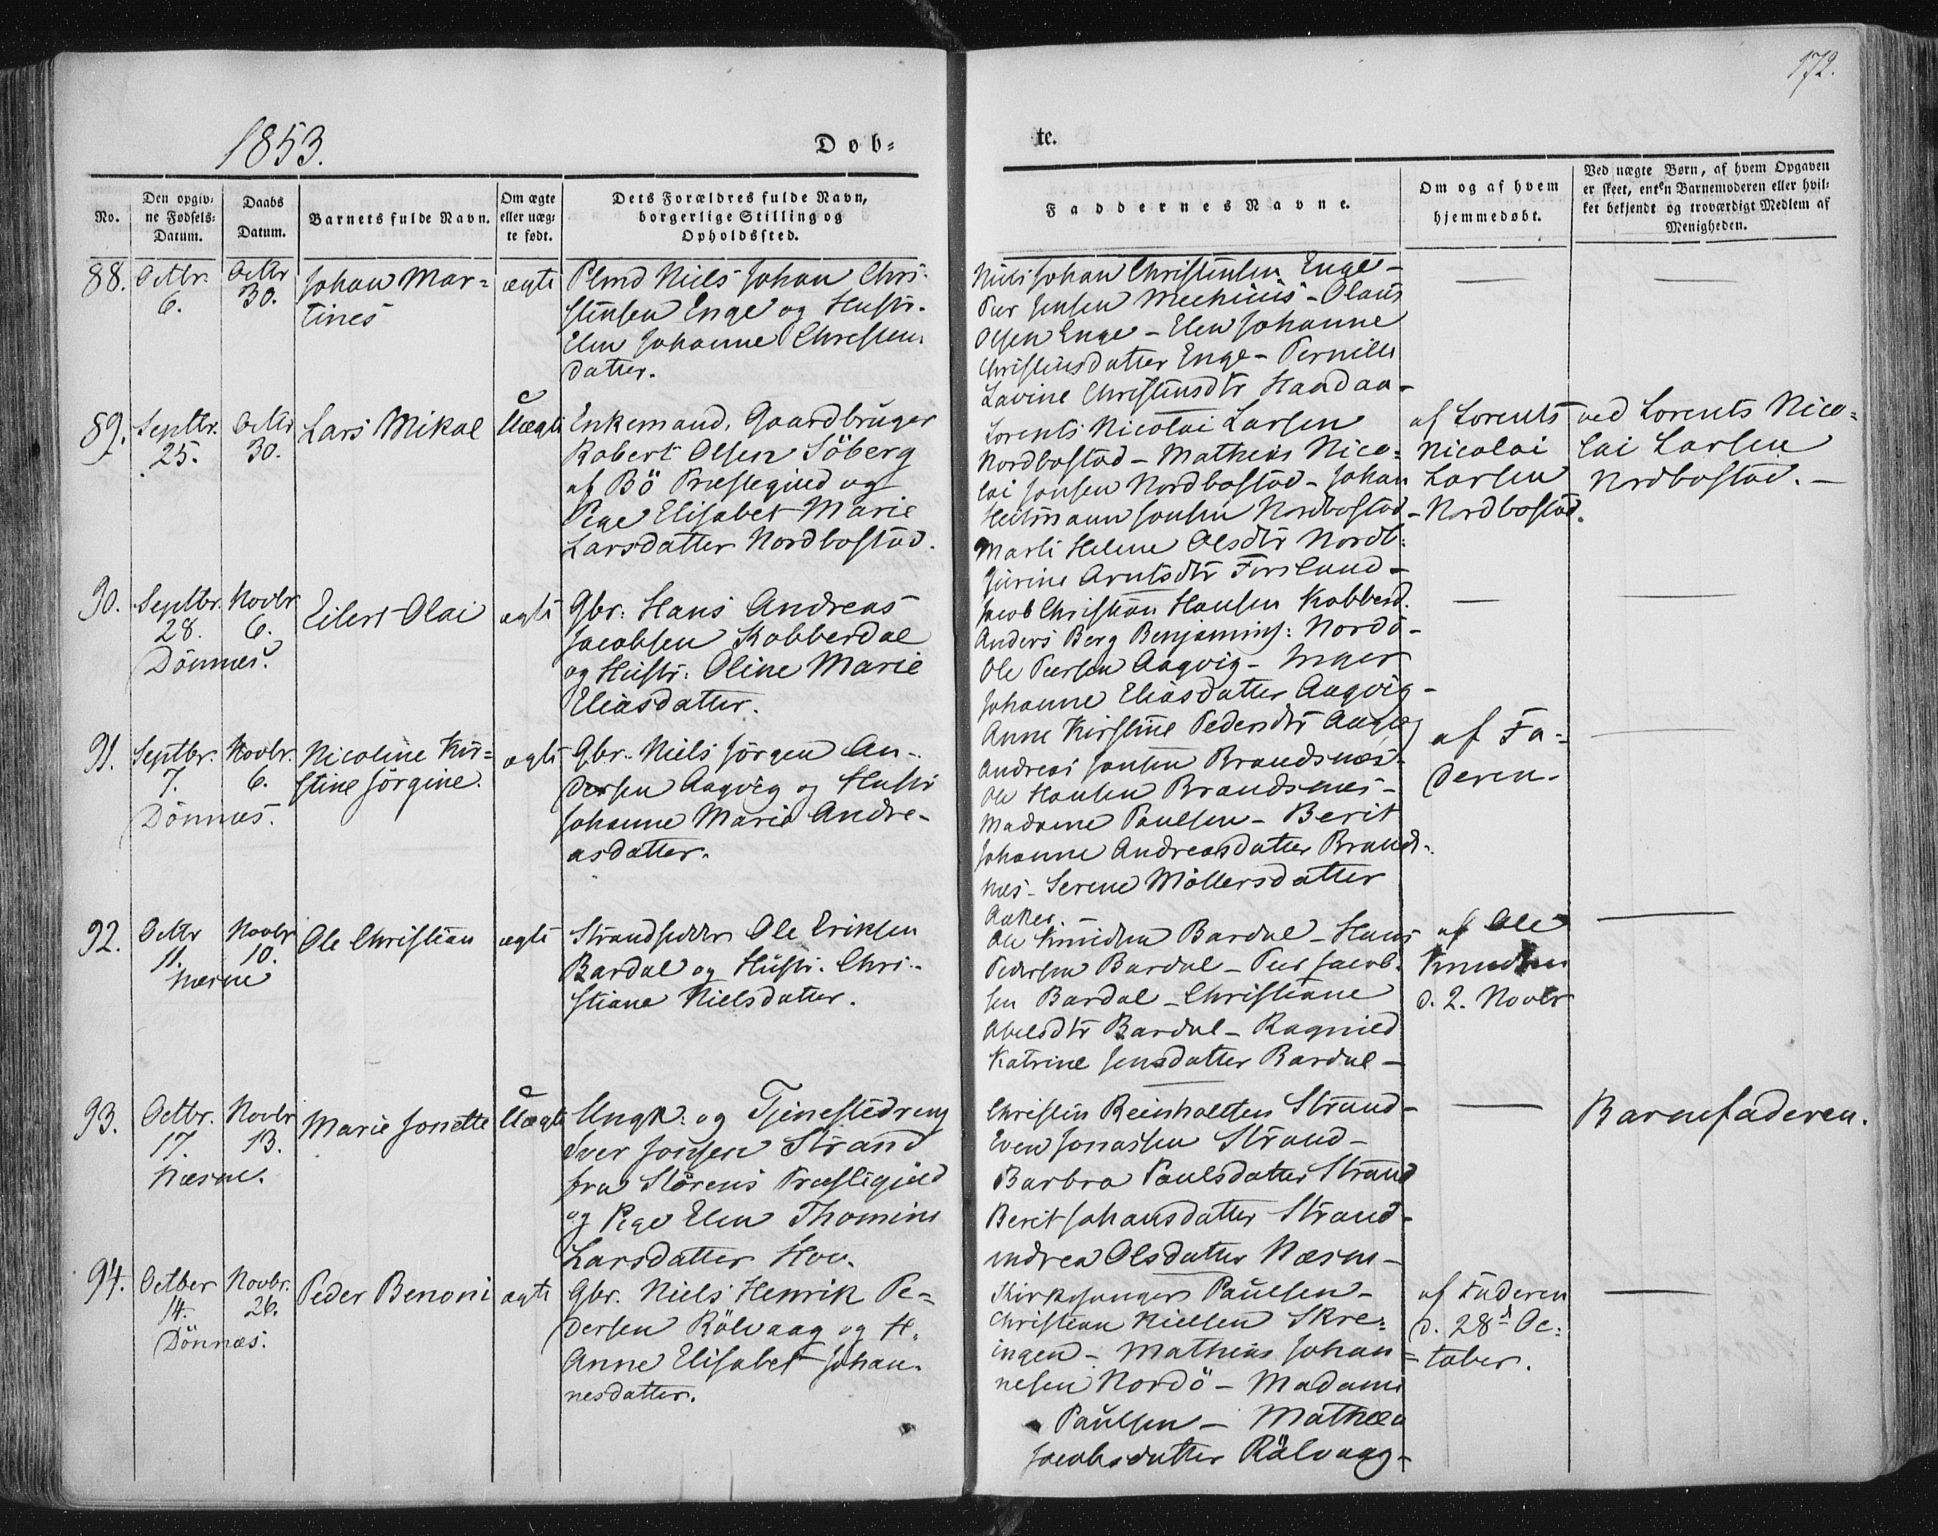 172.
1853.
Døb-
te.
No.
Den opgiv-
ne Fødsels-
Datum.
Daabs
Datum.
Barnets fulde Navn.
Om ægte
eller uæg-
te født.
Dets Forældres fulde Navn,
borgerlige Stilling og
Opholdssted.
Faddernes Navne.
Om og af hvem
hjemmedøbt.
Ved uægte Børn, af hvem Opgaven
er skeet, enten Barnemoderen eller hvil-
ket bekjendt og troværdigt Medlem af
Menigheden.
88.
Octbr.
6.
Octbr
30.
Johan Mar-
tines
ægte
Plmd Niels Johan Chri-
stensen Enge og Hustr.
Elen Johanne Christens
datter.
Niels Johan Christensen Enge -
Peer Jensen - Olaus
Olsen Enge - Elen Johanne
Christensdatter Enge - Pernille
Lavine Christensdtr Haadaa -
89.
Septbr.
25.
Octbr
30.
Lars Mikal
Uægte
Enkemand, Gaardbruger
Robert Olsen Söberg
af Bö Præstegjeld og
Pige Elisabet Marie
Larsdatter Nordbostad.
Lorents Nicolai Larsen
Nordbostad - Mathias Nico-
lai Jonsen Nordbostad - Johan
Heitmann Jonsen Nordbostad -
Marli Helene Olsdtr Nordb:
Jürine Arntsdtr Forslund -
af Lorents
Nicolai
Larsen
Nordbostad.
ved Lorents Nico-
lai Larsen
Nordbostad. -
90.
Septbr.
28.
Dönnæs.
Novbr
6.
Eilert Olai
ægte
Gbr: Hans Andreas
Jacobsen Kobberdal
og Hustr: Oline Marie
Eliasdatter.
Jacob Christian Hansen Kobberd.
Anders Berg Benjamins: Nordö -
Ole Peersen Aagvig - Inger
Johanne Eliasdatter Aagvig -
Anne Kirstine Pedersdtr
91.
Septbr.
7.
Dönnæs.
Novbr.
6.
Nicoline Kir-
stine Jörgine.
ægte
Gbr. Niels Jörgen An-
dersen Aagvig og Hustr
Johanne Marie Andre-
asdatter.
Andreas Jonsen Brandsnæs -
Ole Hansen Brandsnæs -
Madame Paulsen - Berit
Johanne Andreasdatter Brands-
næs - Serene Möllersdatter
Aaker. -
af Fa-
deren.
92.
Octbr
11.
Næsne
Novbr
10.
Ole Christian
ægte
Strandsidder Ole Eriksen
Bardal og Hustr. Chri-
stiane Nielsdatter.
Ole Knudsen Bardal - Hans
Pedersen Bardal - Peer Jacob-
sen Bardal - Christiane
Abelsdtr Bardal - Ragnild
Katrine Jensdatter Bardal -
af Ole
Knudsen
d. 2. Novbr
93.
Octbr.
17.
Næsne.
Novbr
13.
Marie Jonette
Uægte
Ungk: og Tjenestedreng
Iver Jonsen Strand
fra Störens Præstegjeld
og Pige Elen Thomine
Larsdatter Hov.
Christen Reinholtsen Strand -
Even Jonassen Strand -
Barbra Paulsdatter Strand
Berit Johansdatter Strand -
Andrea Olsdatter Næsne -
Barnefaderen.
94.
Octber
14.
Dönnæs.
Novbr.
26.
Peder Benoni
ægte
Gbr. Niels Henrik Pe-
dersen Rölvaag og H.
Anne Elisabet Johan-
nesdatter.
Kirkesanger Paulsen -
Christian Nielsen Skre-
ingen - Mathias Johan-
nesen Nordö - Madame
Paulsen - Mathea
Jacobsdatter Rölvaag -
af Faderen
d. 28d Oc-
tober.